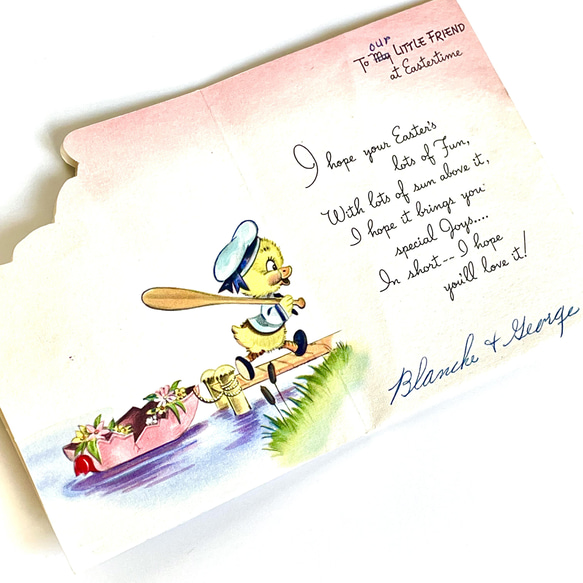 our
To My LITTLE FRIEND
at Eastertime
I hope your Easter's
lots of Fun,
With lots of sun above it,
I hope it brings you
special Joys....
In short-- I hope
you'll love it!
Blanche + George